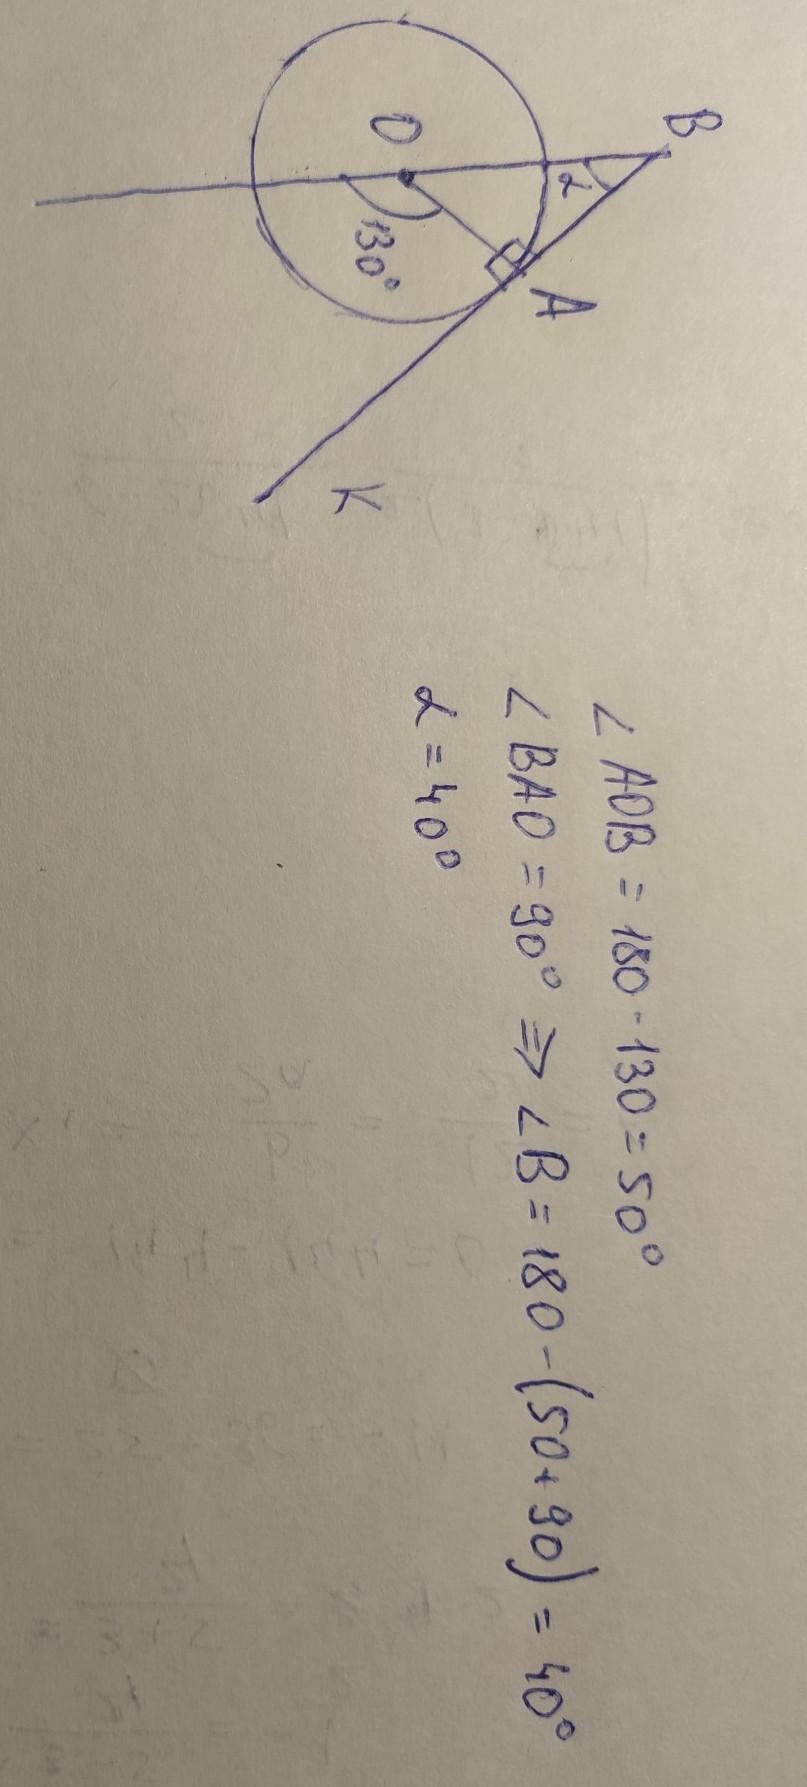 B
α
O
A
130°
K
∠AOB = 180 - 130 = 50°
∠BAO = 90° ⇒ ∠B = 180 - (50 + 90) = 40°
α = 40°